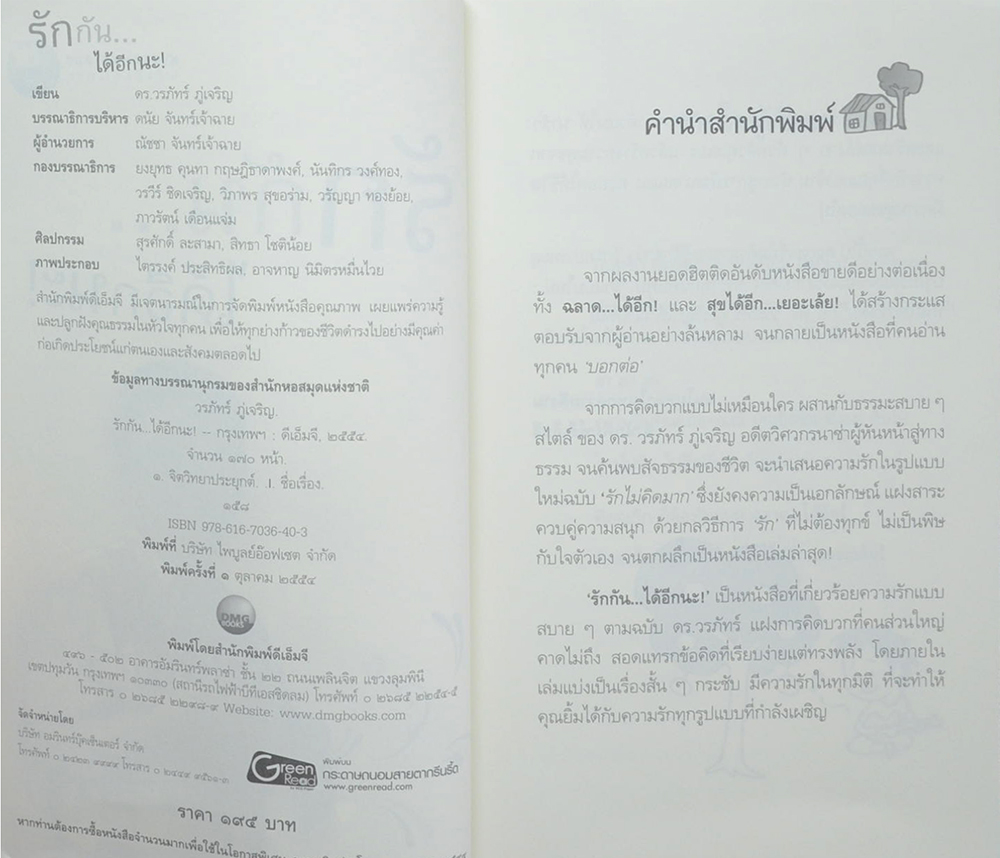 รักกัน...
ได้อีกนะ!
เขียน ดร.วรภัทร์ ภู่เจริญ
บรรณาธิการบริหาร ดนัย จันทร์เจ้าฉาย
ผู้อำนวยการ ณัชชา จันทร์เจ้าฉาย
กองบรรณาธิการ ยงยุทธ คุนทา กฤษฎิธาดาพงศ์, นันทิกร วงศ์ทอง,
วรวีร์ ชิดเจริญ, วิภาพร สุขอร่าม, วรัญญา ทองย้อย,
ภาวรัตน์ เดือนแจ่ม
ศิลปกรรม สุรศักดิ์ ละสามา, สิทธา โชติน้อย
ภาพประกอบ ไตรรงค์ ประสิทธิผล, อาจหาญ นิมิตรหมื่นไวย
สำนักพิมพ์ดีเอ็มจี มีเจตนารมณ์ในการจัดพิมพ์หนังสือคุณภาพ เผยแพร่ความรู้
และปลูกฝังคุณธรรมในหัวใจทุกคน เพื่อให้ทุกย่างก้าวของชีวิตดำรงไปอย่างมีคุณค่า
ก่อเกิดประโยชน์แก่ตนเองและสังคมตลอดไป
ข้อมูลทางบรรณานุกรมของสำนักหอสมุดแห่งชาติ
วรภัทร์ ภู่เจริญ.
รักกัน...ได้อีกนะ! -- กรุงเทพฯ : ดีเอ็มจี, ๒๕๕๔.
จำนวน ๑๗๐ หน้า.
๑. จิตวิทยาประยุกต์. .I. ชื่อเรื่อง.
๑๕๘
ISBN 978-616-7036-40-3
พิมพ์ที่ บริษัท ไพบูลย์อ๊อฟเซต จำกัด
พิมพ์ครั้งที่ ๑ ตุลาคม ๒๕๕๔
DMG
BOOKS
พิมพ์โดยสำนักพิมพ์ดีเอ็มจี
๔๙๖ - ๕๐๒ อาคารอัมรินทร์พลาซ่า ชั้น ๒๒ ถนนเพลินจิต แขวงลุมพินี
เขตปทุมวัน กรุงเทพฯ ๑๐๓๓๐ (สถานีรถไฟฟ้าบีทีเอสชิดลม) โทรศัพท์ ๐ ๒๖๘๕ ๒๒๕๔-๕
โทรสาร ๐ ๒๖๘๕ ๒๒๙๘-๙ Website: www.dmgbooks.com
จัดจำหน่ายโดย
บริษัท อมรินทร์บุ๊คเซ็นเตอร์ จำกัด
โทรศัพท์ ๐ ๒๔๒๓ ๙๙๙๙ โทรสาร ๐ ๒๔๔๙ ๙๕๖๑-๓
Green
Read
พิมพ์บน
กระดาษถนอมสายตากรีนรี้ด
www.greenread.com
ราคา ๑๙๕ บาท
หากท่านต้องการซื้อหนังสือจำนวนมากเพื่อใช้ในโอกาสพิเศษ
คำนำสำนักพิมพ์
จากผลงานยอดฮิตติดอันดับหนังสือขายดีอย่างต่อเนื่อง
ทั้ง ฉลาด...ได้อีก! และ สุขได้อีก...เยอะเล้ย! ได้สร้างกระแส
ตอบรับจากผู้อ่านอย่างล้นหลาม จนกลายเป็นหนังสือที่คนอ่าน
ทุกคน 'บอกต่อ'
จากการคิดบวกแบบไม่เหมือนใคร ผสานกับธรรมะสบาย ๆ
สไตล์ ของ ดร. วรภัทร์ ภู่เจริญ อดีตวิศวกรนาซ่าผู้หันหน้าสู่ทาง
ธรรม จนค้นพบสัจธรรมของชีวิต จะนำเสนอความรักในรูปแบบ
ใหม่ฉบับ 'รักไม่คิดมาก' ซึ่งยังคงความเป็นเอกลักษณ์ แฝงสาระ
ควบคู่ความสนุก ด้วยกลวิธีการ 'รัก' ที่ไม่ต้องทุกข์ ไม่เป็นพิษ
กับใจตัวเอง จนตกผลึกเป็นหนังสือเล่มล่าสุด!
'รักกัน...ได้อีกนะ!' เป็นหนังสือที่เกี่ยวร้อยความรักแบบ
สบาย ๆ ตามฉบับ ดร.วรภัทร์ แฝงการคิดบวกที่คนส่วนใหญ่
คาดไม่ถึง สอดแทรกข้อคิดที่เรียบง่ายแต่ทรงพลัง โดยภายใน
เล่มแบ่งเป็นเรื่องสั้น ๆ กระชับ มีความรักในทุกมิติ ที่จะทำให้
คุณยิ้มได้กับความรักทุกรูปแบบที่กำลังเผชิญ